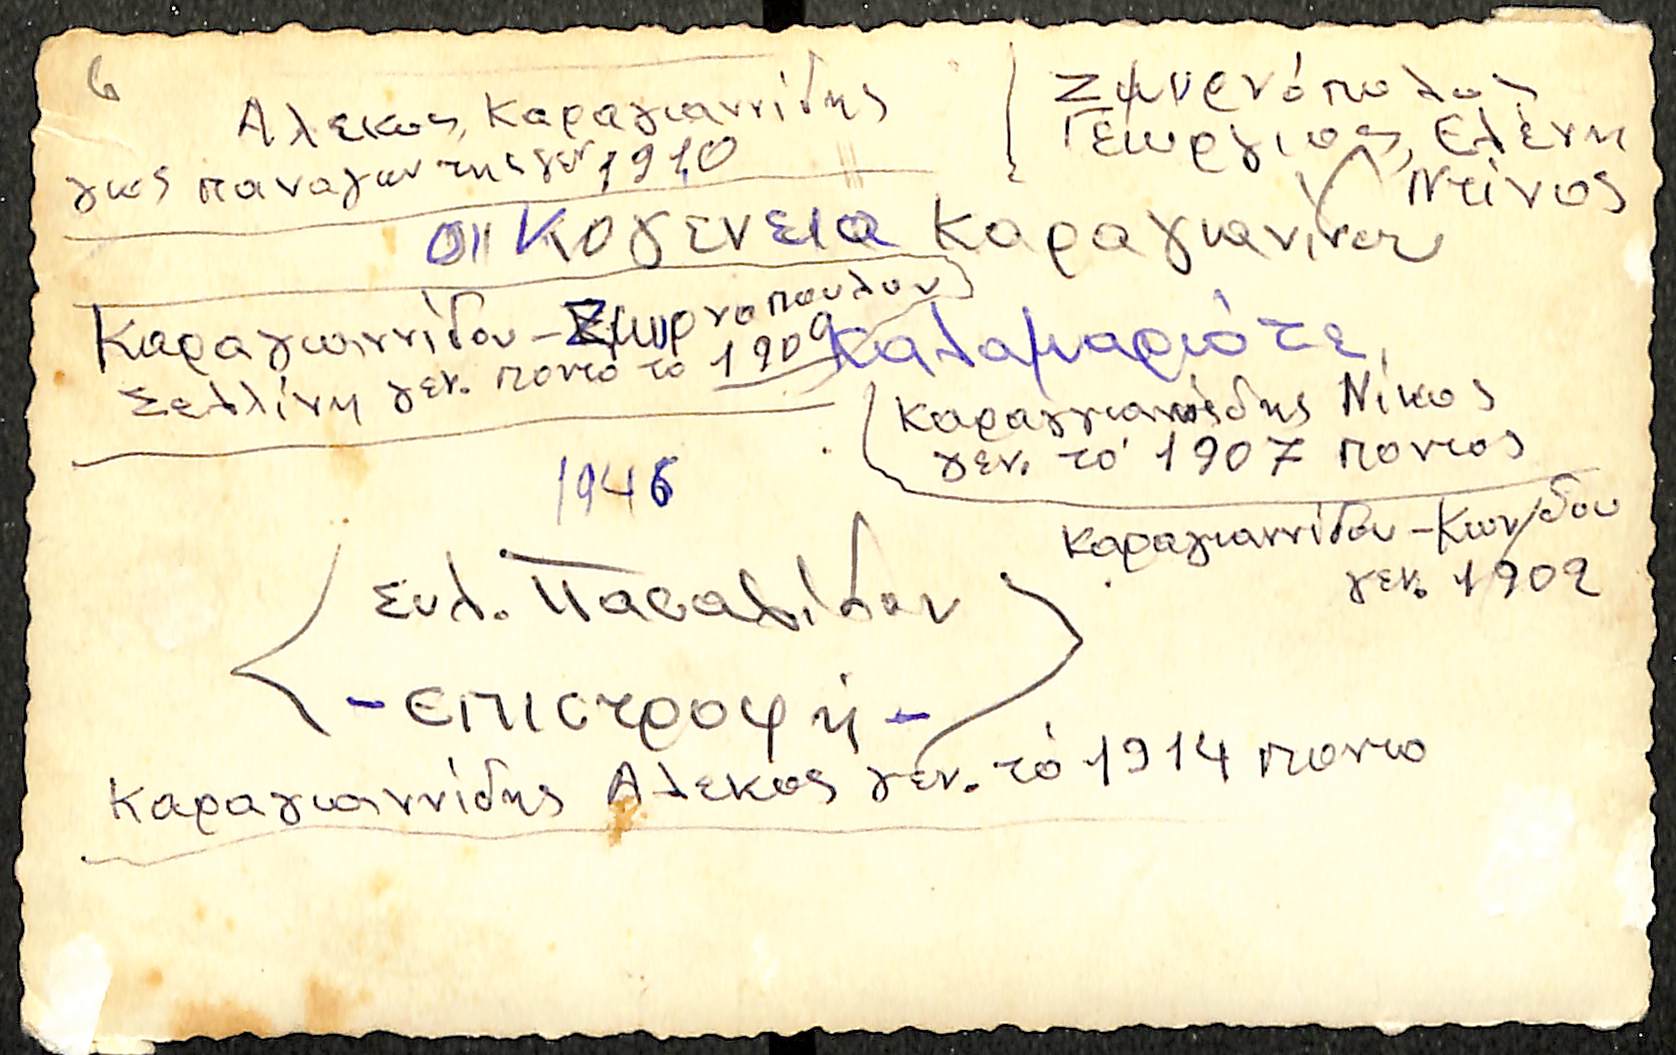 6
Αλεκος Καραγιαννίδης
γιος παναγιωτης γεν 1910
Ζμυρνόπουλος
Γεωργιος, Ελένη
Ντίνος
οικογενεια Καραγιανινων
Καραγιαννίδου - Ζμυρνοπουλου
Σελλίνη γεν. ποντο το 1909
Καλαμαριότε,
Καραγγιανίδης Νίκος
γεν. το 1907 ποντος
1946
Καραγιαννίδου - Κων/δου
γεν. 1902
Συλ. Πασαλίδου
- επιστροφή -
Καραγιαννίδης Αλεκος γεν. τό 1914 ποντο